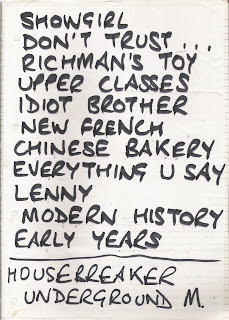 SHOWGIRL
DON'T TRUST...
RICHMAN'S TOY
UPPER CLASSES
IDIOT BROTHER
NEW FRENCH
CHINESE BAKERY
EVERYTHING U SAY
LENNY
MODERN HISTORY
EARLY YEARS
HOUSEBREAKER
UNDERGROUND M.